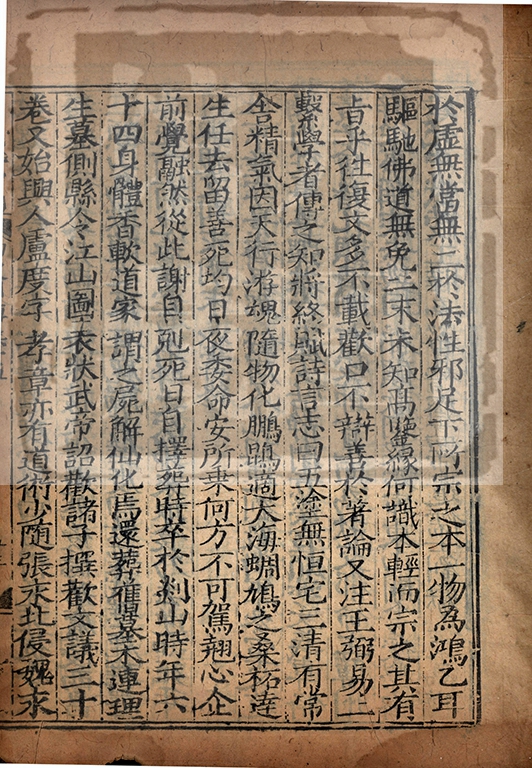 於虛無當無二於法性邪足下所宗之本一物為鴻乙耳
驅馳佛道無免二末未知高鑒緣何識本輕而宗之其有
旨乎往復文多不載歡口不辯善於著論又注王弼易二
繫學者傳之知將終賦詩言志曰五塗無恒宅三清有常
舍精氣因天行游魂隨物化鵬鶤適大海蜩鳩之桑柘達
生任去留善死均日夜委命安所乗何方不可駕翹心企
前覺融然從此謝自剋死日自擇葬時卒於剡山時年六
十四身體香軟道家謂之屍解仙化焉還葬舊墓木連理
生墓側縣令江山圖表狀武帝詔歡諸子撰歡文議三十
卷又始興人盧度字孝章亦有道術少隨張永北侵魏永